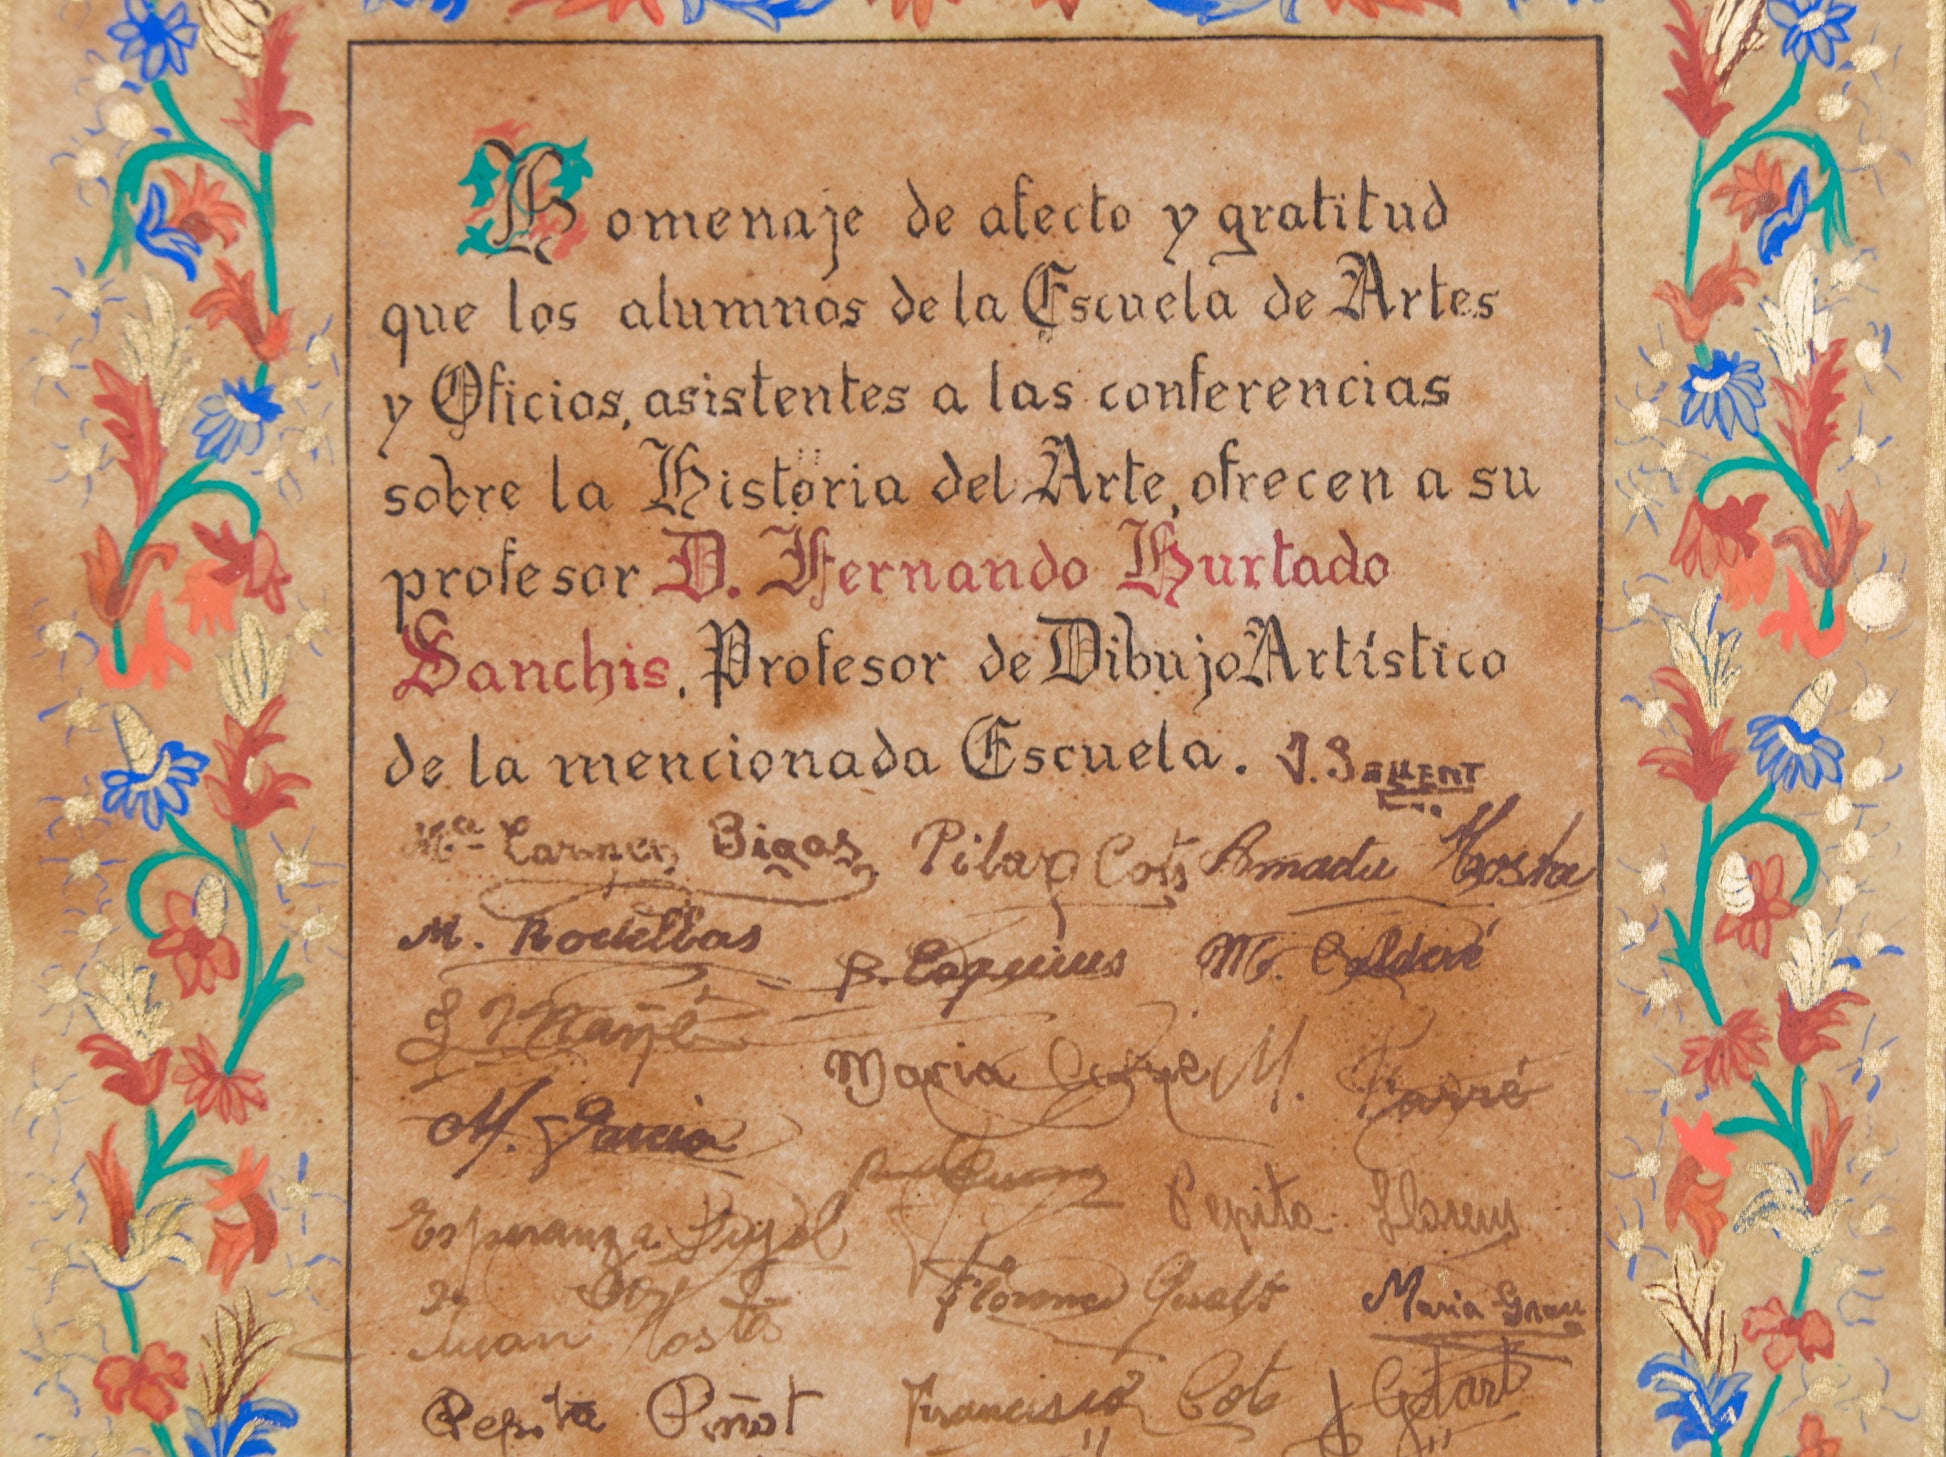 Homenaje de afecto y gratitud
que los alumnos de la Escuela de Artes
y Oficios, asistentes a las conferencias
sobre la Historia del Arte, ofrecen a su
profesor D. Fernando Hurtado
Sanchis, Profesor de Dibujo Artístico
de la mencionada Escuela.
Mª Carmen Bigas Pilar Cots Amadeu
M. Rodellbas M. Calderé
Mañé
Maria M. Farré
M. Garcia
Esperanza Pujol Pepita Llorens
Florence Gualts Maria Grau
Juan
Pepita Piñot Francisco Cots J Gotart